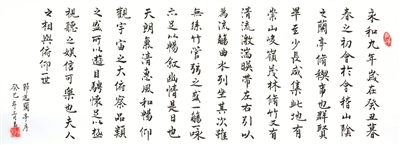 永和九年歲在癸丑暮
春之初會於會稽山陰
之蘭亭脩禊事也群賢
畢至少長咸集此地有
崇山峻嶺茂林脩竹又有
清流激湍暎帶左右引以
為流觴曲水列坐其次雖
無絲竹管弦之盛一觴一詠
亦足以暢敘幽情是日也
天朗氣清惠風和暢仰
觀宇宙之大俯察品類
之盛可以遊目騁懷足以極
視聽之娛信可樂也夫人
之相與俯仰一世
節選蘭亭序
癸巳年